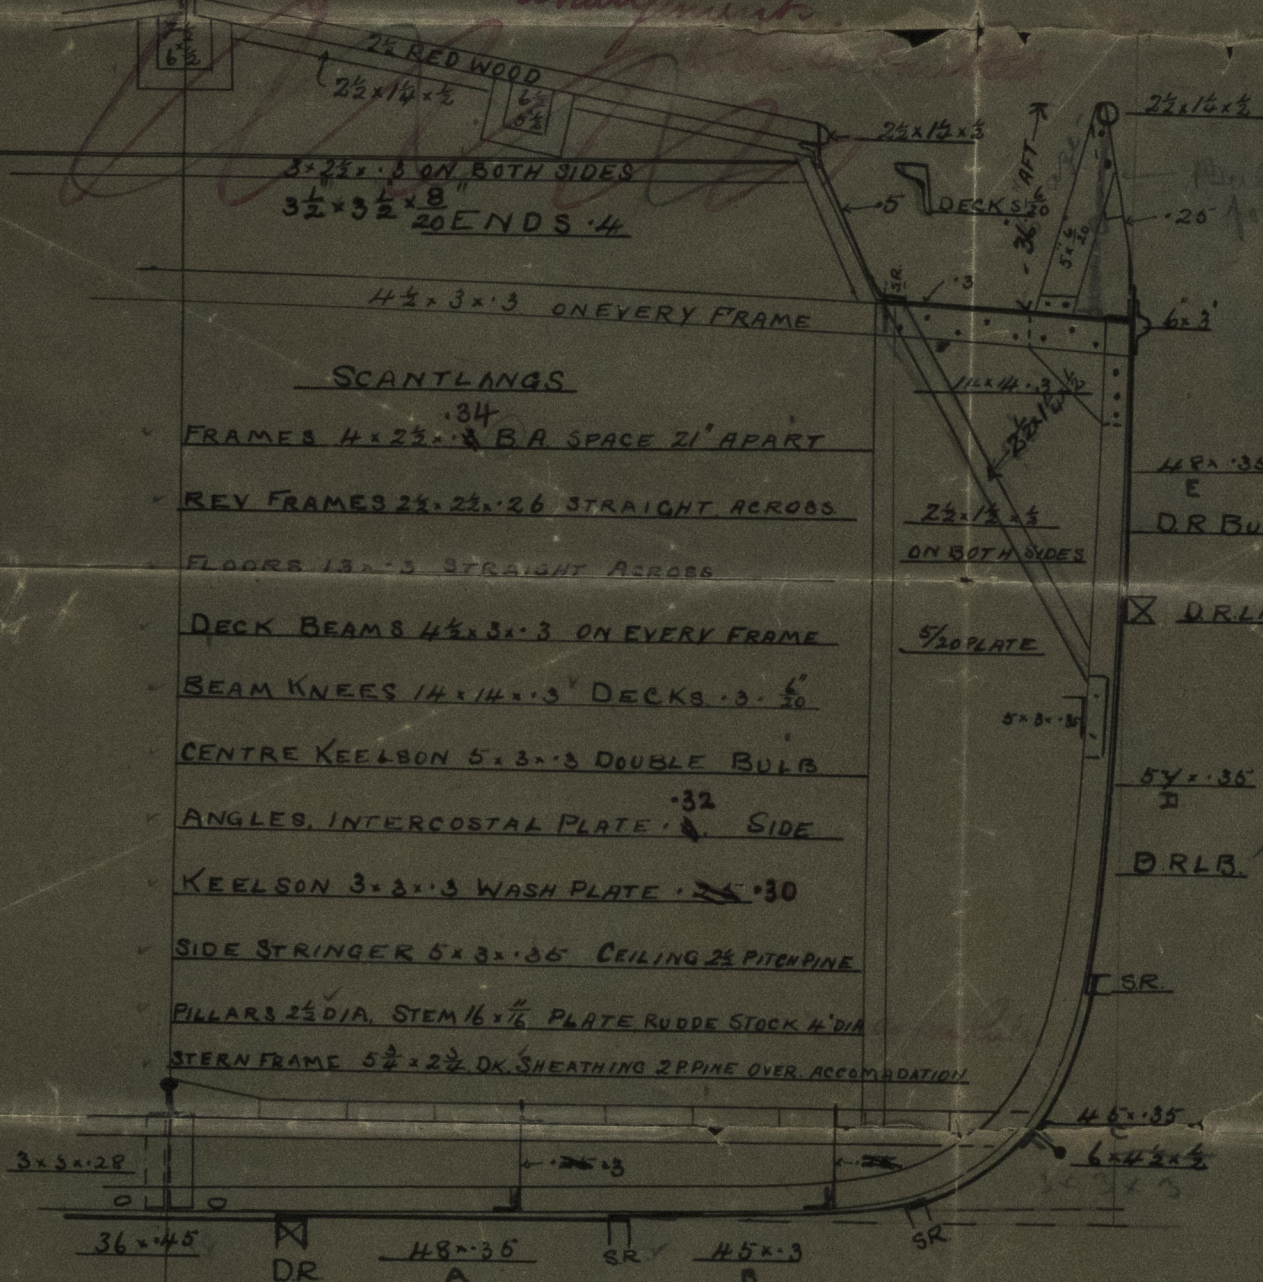 7½
6½
2½ RED WOOD
2½ × 1¼ × ½
6½
5½
3 × 2½ × ·3 ON BOTH SIDES
3½" × 3½" × 8/20
ENDS ·4
4½ × 3 × ·3 ON EVERY FRAME
2½ × 1½ × ½
·5
DECKS 6/20
36" AFT
5 × 6/20
2½ × 1¼ × ½
·25
S.R.
·3
6" × 3"
SCANTLINGS
·34
FRAMES 4 × 2½ × · B.A. SPACE 21" APART
REV FRAMES 2½ × 2½ × ·26 STRAIGHT ACROSS
FLOORS 13 × ·3 STRAIGHT ACROSS
DECK BEAMS 4½ × 3 × ·3 ON EVERY FRAME
BEAM KNEES 14 × 14 × ·3 DECKS ·3 · 6"/20
CENTRE KEELSON 5 × 3 × ·3 DOUBLE BULB
·32
ANGLES. INTERCOSTAL PLATE · SIDE
KEELSON 3 × 3 × ·3 WASH PLATE · 25 ·30
SIDE STRINGER 5 × 3 × ·35 CEILING 2½ PITCHPINE
PILLARS 2½ DIA. STEM 16 × 11/16 PLATE RUDDE STOCK 4" DIA
STERN FRAME 5¾ × 2¾ DK. SHEATHING 2 P.PINE OVER ACCOMADATION
2½ × 1½ × ½
ON BOTH SIDES
5/20 PLATE
5 × 3 × ·35
48 × ·35
E
D.R BU
D.R.L
54 × ·35
D
D.R.L.B.
S.R.
45 × ·35
C
6 × 4½ × ½
3 × 3 × 3
3 × 3 × ·28
·25 ·3
·25
36 × ·45
D.R
48 × ·35
A
S.R
45 × ·3
B
SR